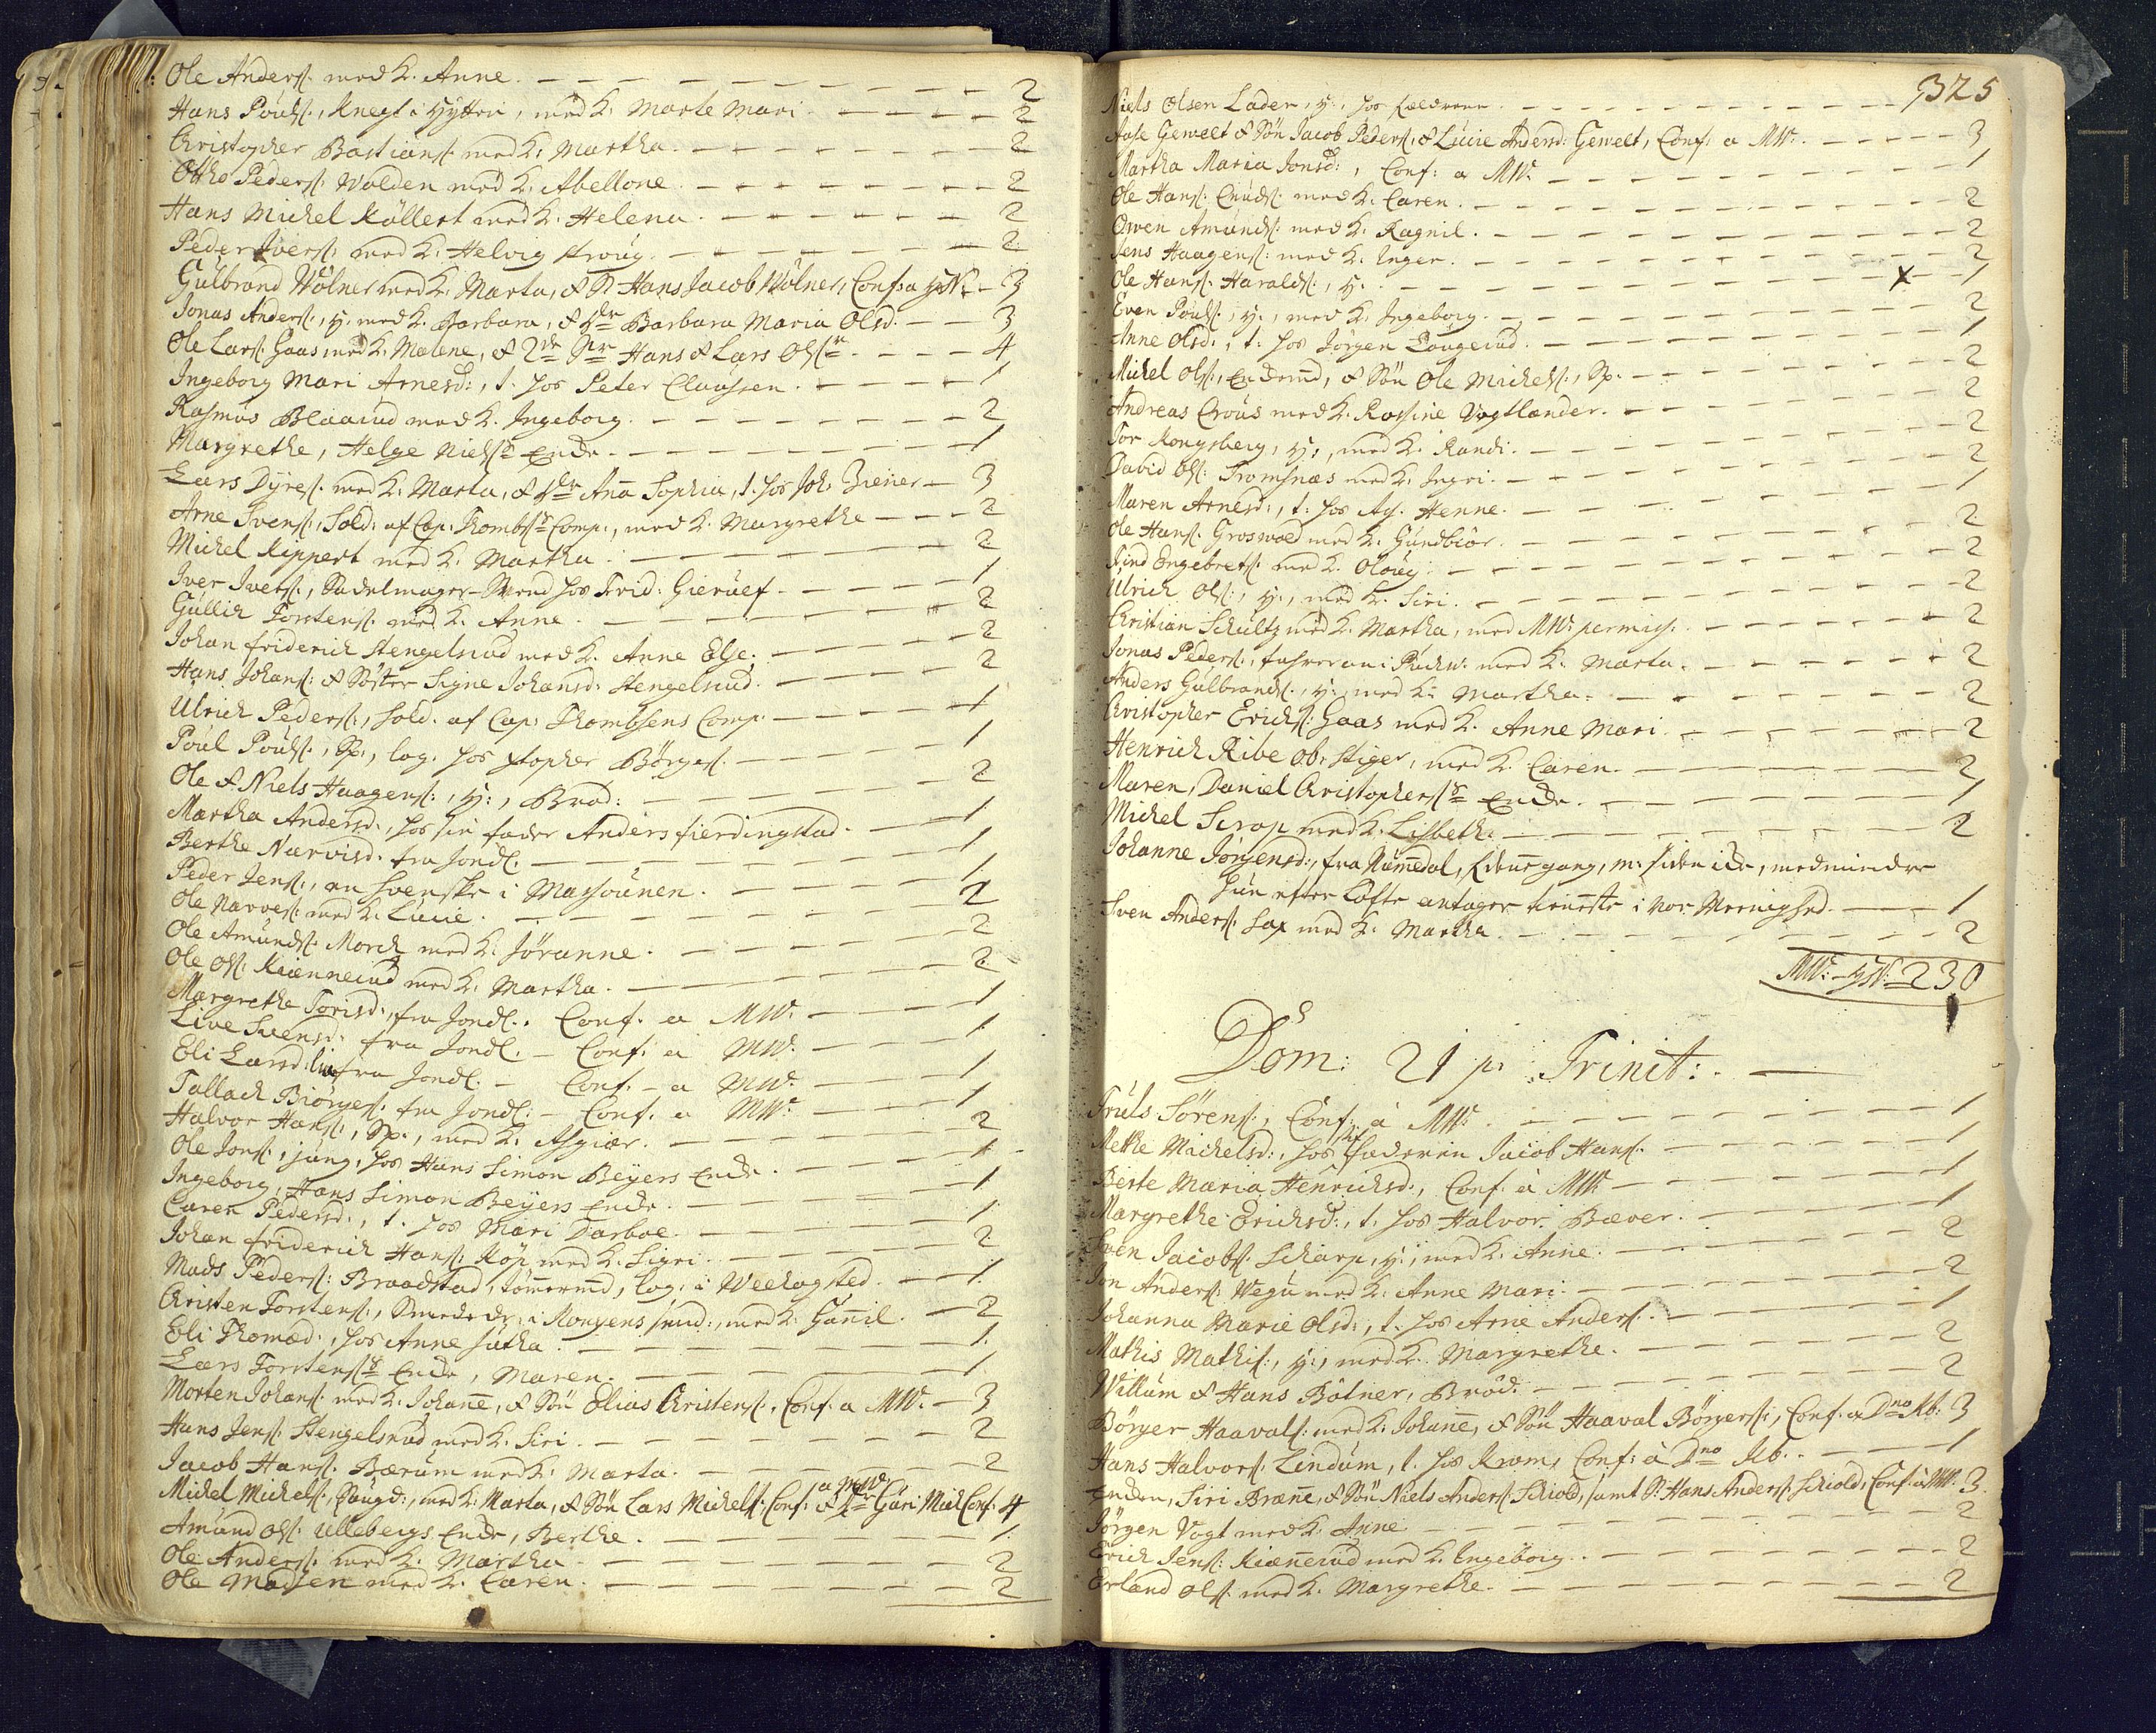 Ole Anders: med K. Anne. - - - 2
Hans Pouls:, Knegt i Hytten, med K. Marte Mari - - - 2
Christopher Bastians: med K: Martha. - - - 2
Otho Peders: Wolden med K. Abellone. - - - 2
Hans Michel Köllert med K. Helena. - - - 2
Peder Ivers: med K: Helvig - - - 2
Gulbrand Wölner med K. Marta, & S: Hans Jacob Wölner, Conf: a - 3
Jonas Anders:, H. med K. Barbara, & Barbara Maria Olsd. - - 3
Ole Lars: Gaas med K. Malene, & 2de Hans & Lars Ols: - - - 4
Ingeborg Mari Arnesd:, t. hos Peter Claussen. - - - 1
Rasmus Blaarud med K. Ingeborg. - - - 2
Margrethe, Helge Niels: Encke. - - - 1
Lars Dyres: med K. Marta, & Ana Sophia, t. hos Joh: Ziener - 3
Arne Svens:, Sold: af Cap: Thombs: Comp:, med K. Margrethe - - - 2
Michel Kippert med K. Martha. - - - 2
Iver Ivers:, Sadelmager-Svend hos Frid: Gieruef - - - 1
Gullich Torstens: med K. Anne. - - - 2
Johan friderich Stengelsrud med K. Anne Else. - - - 2
Hans Johans: & Söster Signe Johansd: Stengelsrud. - - - 2
Ulrich Peders:, Sold. af Cap: Thombsens Comp. - - - 1
Poul Pouls:, Sp:, log. hos xstopher Börges: - - - 1
Ole & Niels Haagens:, H:, Brød: - - - 2
Martha Andersd:, hos sin fader Anders fierdingstad. - - - 1
Berthe Narvisd. fra Jondl. - - - 1
Peder Jens:, en Svenske i Massounen. - - - 1
Ole Narves: med K. Lucie. - - - 2
Ole Amunds: Morck med K. Jöranne. - - - 2
Ole Ols: Kiennerud med K. Martha. - - - 2
Margrethe Torisd:, fra Jondl. Conf. a MW. - - - 1
Live Svensd: fra Jondl. - Conf. a MW. - - - 1
Eli Larsd: fra Jondl. - Conf. - a MW. - - - 1
Tallach Biörges: fra Jondl: - Conf. a MW: - - - 1
Halvor Hans:, Sp., med K. Asgiær. - - - 2
Ole Jons:, jung, hos Hans Simon Beyers Encke. - - - 1
Ingeborg, Hans Simon Beyers Encke. - - - 1
Caren Pedersd:, t. hos Mari Darboe. - - - 1
Johan friderich Hans: Köp med K. Sigri. - - - 2
Mads Peders: Braadstad, tömmermd, log: i Weelagsted. - - - 1
Christen Torstens:, i Kongens smid:, med K: Gunil. - - 2
Eli Thomad:, hos Anne Jutha. - - - 1
Lars Torstens: Encke, Maren. - - - 1
Morten Johans: med K. Johane, & Sön Elias Christens:, Conf. a MW. - 3
Hans Jens: Stengelsrud med K. Siri. - - - 2
Jacob Hans: Bærum med K: Marta. - - - 2
a MW
Michel Michels:, med K: Marta, & Sön Lars Michels: Conf: & Guri Mich Conf. 4
Amund Ols: Ullebergs Encke, Berthe. - - - 1
Ole Anders: med K. Martha. - - - 2
Ole Madsen med K. Caren. - - - 2
325
Niels Olsen Lader, H:, hos - - -
Gewelt & Sön Jacob Peders: & Lucie Andersd: Gewelt, Conf: a MW. - - - 3
Martha Maria Jonsd:, Conf: a MW. - - - 1
Ole Hans: Cnuds: med K. Caren. - - - 2
Owen Amunds: med K. Ragnil. - - - 2
Jens Haagens: med K. Inger. - - - 2
Ole Hans: Haralds:, H. - - - x - 1
Even Pouls:, H., med K. Ingeborg. - - - 2
Anne Olsd:, t. hos Jörgen Lougerud. - - - 1
Michel Ols:, & Sön Ole Michels:, Sp. - - - 2
Andreas Crous med K. Rossine Vogtlander. - - - 2
Tor Kongsberg, H:, med K. Randi. - - - 2
David Ols: Tromsnæs med K. Ingri. - - - 2
Maren Arnesd:, t. hos Ag. Henne. - - - 1
Ole Hans: Groswold med K. Gundbiör. - - - 2
Engebrets: med K. Oloug. - - - 2
Ulrich Ols:, H:, med K. Siri. - - - 2
Christian Schultz med K. Martha, med MW: permiss. - - - 2
Jonas Peders:, med K. Marta. - - - 2
Anders Gulbrands:, H: med K: Martha. - - - 2
Christopher Erichs: Gaas med K. Anne Mari. - - - 2
Henrich Ribe Ob: Stiger, med K. Caren. - - - 2
Maren, Daniel Christophers: Encke. - - - 1
Michel Scrop med K. Lisbeth. - - - 2
Johanne Jörgensd:, fra Numedal, gang, m: siden icke, medmindre
hun efter Løfte antager tieneste i vor Menighed. - - 1
Sven Anders: Sax med K: Martha. - - - 2
MW: - 230
Dom: 21 p: Trinit: -
Truls Sörens:, Conf: a MW. - - - 1
Mette Michelsd:, hos Stiffaderen Jacob Hans: - - - 1
Berte Maria Henrichsd:, Conf: a MW - - - 1
Margrethe Erichsd:, t. hos Halvor Bæver. - - - 1
Sven Jacobs: Scharp, H:, med K. Anne. - - - 2
Jon Anders: Wegu med K. Anne Mari. - - - 2
Johanna Marie Olsd:, t. hos Arne Anders: - - - 1
Mathis Mathis:, H:, med K. Margrethe. - - - 2
Willum & Hans Bötner, Bröd. - - - 2
Börger Haavals: med K. Johane, & Sön Haaval Börgers:, Conf. a Dno Kb: 3
Hans Halvors: Lindum, t. hos Krom, Conf: a Dno Kb. - - - 1
Encken, Siri Bræne, & Sön Niels Anders: Schiold, samt S: Hans Anders: Schiold, Conf: a MW. 3
Jörgen Vogt med K. Anne. - - - 2
Erich Jens: Kiennerud med K. Engeborg. - - - 2
Erland Ols: med K. Margrethe. - - - 2